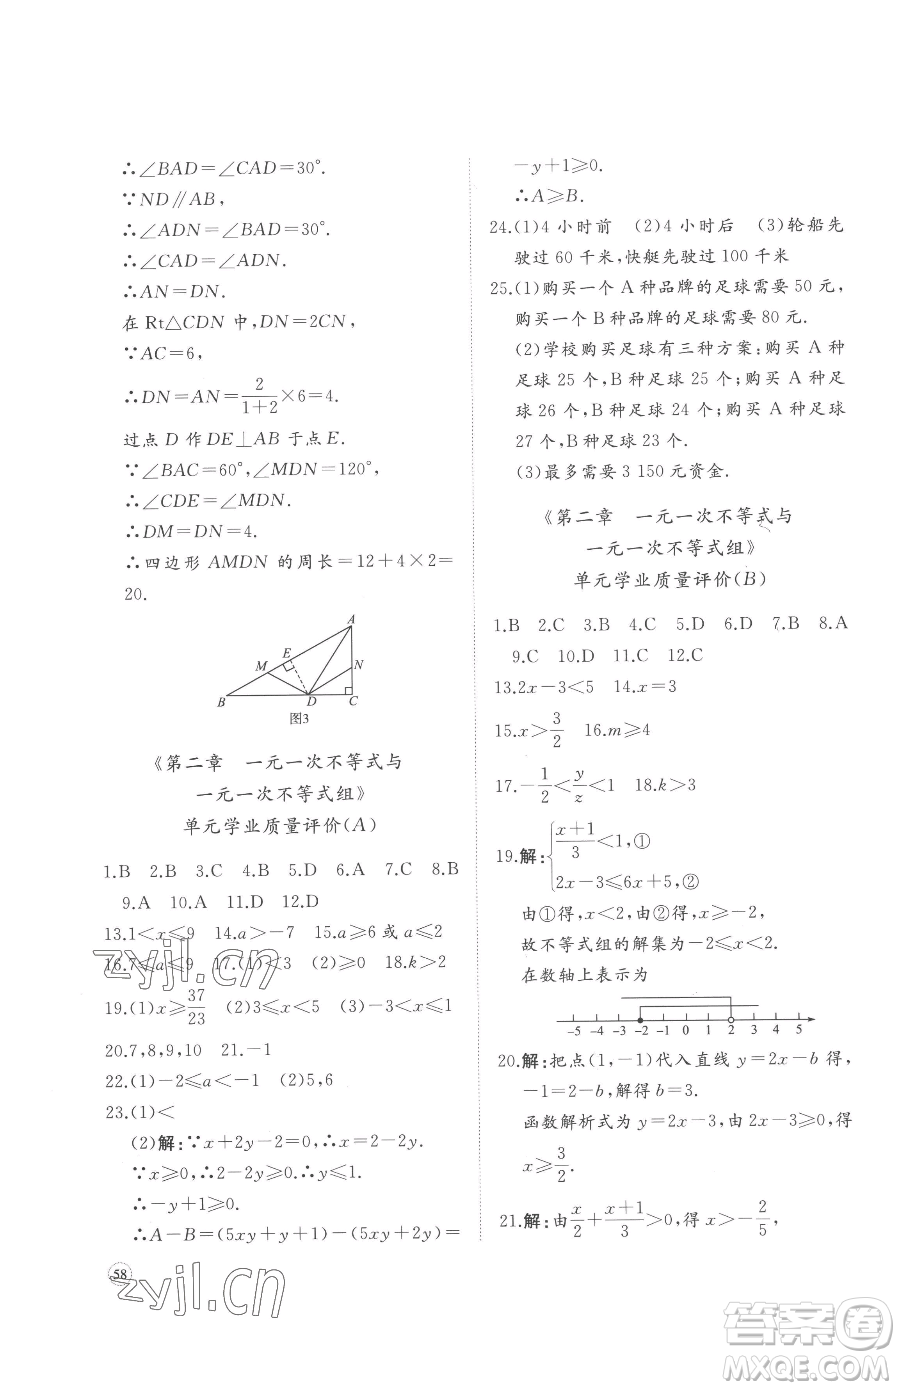 ∴∠BAD=∠CAD=30°.
∵ND∥AB,
∴∠ADN=∠BAD=30°.
∴∠CAD=∠ADN.
∴AN=DN.
在 Rt△CDN 中,DN=2CN,
∵AC=6,
∴DN=AN=2/(1+2)×6=4.
过点 D 作 DE⊥AB 于点 E.
∵∠BAC=60°,∠MDN=120°,
∴∠CDE=∠MDN.
∴DM=DN=4.
∴四边形 AMDN 的周长=12+4×2=
20.
A
E
M
N
B
D
C
图3
《第二章 一元一次不等式与
一元一次不等式组》
单元学业质量评价(A)
1.B 2.B 3.C 4.B 5.D 6.A 7.C 8.B
9.A 10.A 11.D 12.D
13.1<x≤9 14.a>-7 15.a≥6或a≤2
16.7≤a≤9 17.(1)<3 (2)≥0 18.k>2
19.(1)x≥37/23 (2)3≤x<5 (3)-4<x≤1
20.7,8,9,10 21.-1
22.(1)-2≤a<-1 (2)5,6
23.(1)<
(2)解:∵x+2y-2=0,∴x=2-2y.
∵x≥0,∴2-2y≥0.∴y≤1.
∴-y+1≥0.
∴A-B=(5xy+y+1)-(5xy+2y)=
58
zyjl.cn
zyjl.cn
-y+1≥0.
∴A≥B.
24.(1)4 小时前 (2)4 小时后 (3)轮船先
驶过 60 千米,快艇先驶过 100 千米
25.(1)购买一个 A 种品牌的足球需要 50 元,
购买一个 B 种品牌的足球需要 80 元.
(2)学校购买足球有三种方案:购买 A 种
足球 25 个,B 种足球 25 个;购买 A 种足球
26 个,B 种足球 24 个;购买 A 种足球
27 个,B 种足球 23 个.
(3)最多需要 3 150 元资金.
《第二章 一元一次不等式与
一元一次不等式组》
单元学业质量评价(B)
1.B 2.C 3.B 4.C 5.D 6.D 7.B 8.A
9.C 10.D 11.C 12.C
13.2x-3<5 14.x=3
15.x>3/2 16.m≥4
17.-1/2<y/z<1 18.k>3
19.解:{(x+1)/3<1,①
2x-3≤6x+5,②
由①得,x<2,由②得,x≥-2,
故不等式组的解集为-2≤x<2.
在数轴上表示为
-5 -4 -3 -2 -1 0 1 2 3 4 5
20.解:把点(1,-1)代入直线 y=2x-b 得,
-1=2-b,解得 b=3.
函数解析式为 y=2x-3,由 2x-3≥0,得
x≥3/2.
21.解:由x/2+(x+1)/3>0,得 x>-2/5,
答案圈
MXQE.COM